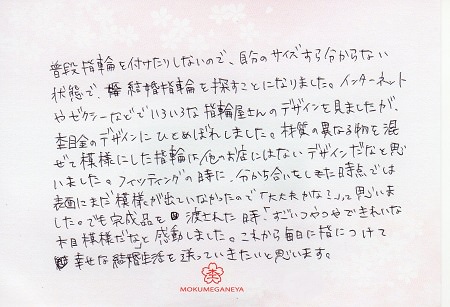 普段指輪を付けたりしないので、自分のサイズすら分からない
状態で、結婚指輪を探すことになりました。インターネット
やゼクシーなどでいろいろな指輪屋さんのデザインを見ましたが、
杢目金のデザインにひとめぼれしました。材質の異なる物を混
ぜて模様にした指輪は他のお店にはないデザインだなと思
いました。フィッティングの時に、分かち合いをしてきた時点では
表面にまだ模様が出ていなかったので「大丈夫かな?」って思いま
した。でも完成品を渡された時、すごいつやつやできれいな
木目模様だなと感動しました。これから毎日に指につけて
幸せな結婚生活を送っていきたいと思います。
MOKUMEGANEYA